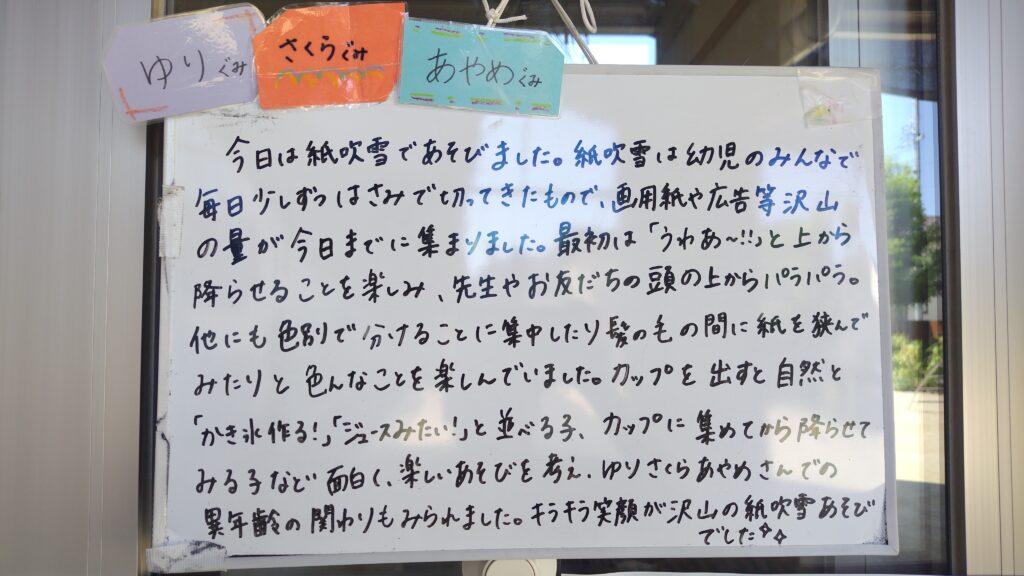 ゆりぐみ
さくらぐみ
あやめぐみ
今日は紙吹雪であそびました。紙吹雪は幼児のみんなで
毎日少しずつはさみで切ってきたもので、画用紙や広告等沢山
の量が今日までに集まりました。最初は「うわあ〜!!」と上から
降らせることを楽しみ、先生やお友だちの頭の上からパラパラ。
他にも色別で分けることに集中したり髪の毛の間に紙を挟んで
みたりと色んなことを楽しんでいました。カップを出すと自然と
「かき氷作る!」「ジュースみたい!」と並べる子、カップに集めてから降らせて
みる子など面白く、楽しいあそびを考え、ゆりさくらあやめさんでの
異年齢の関わりもみられました。キラキラ笑顔が沢山の紙吹雪あそび
でした✧✧